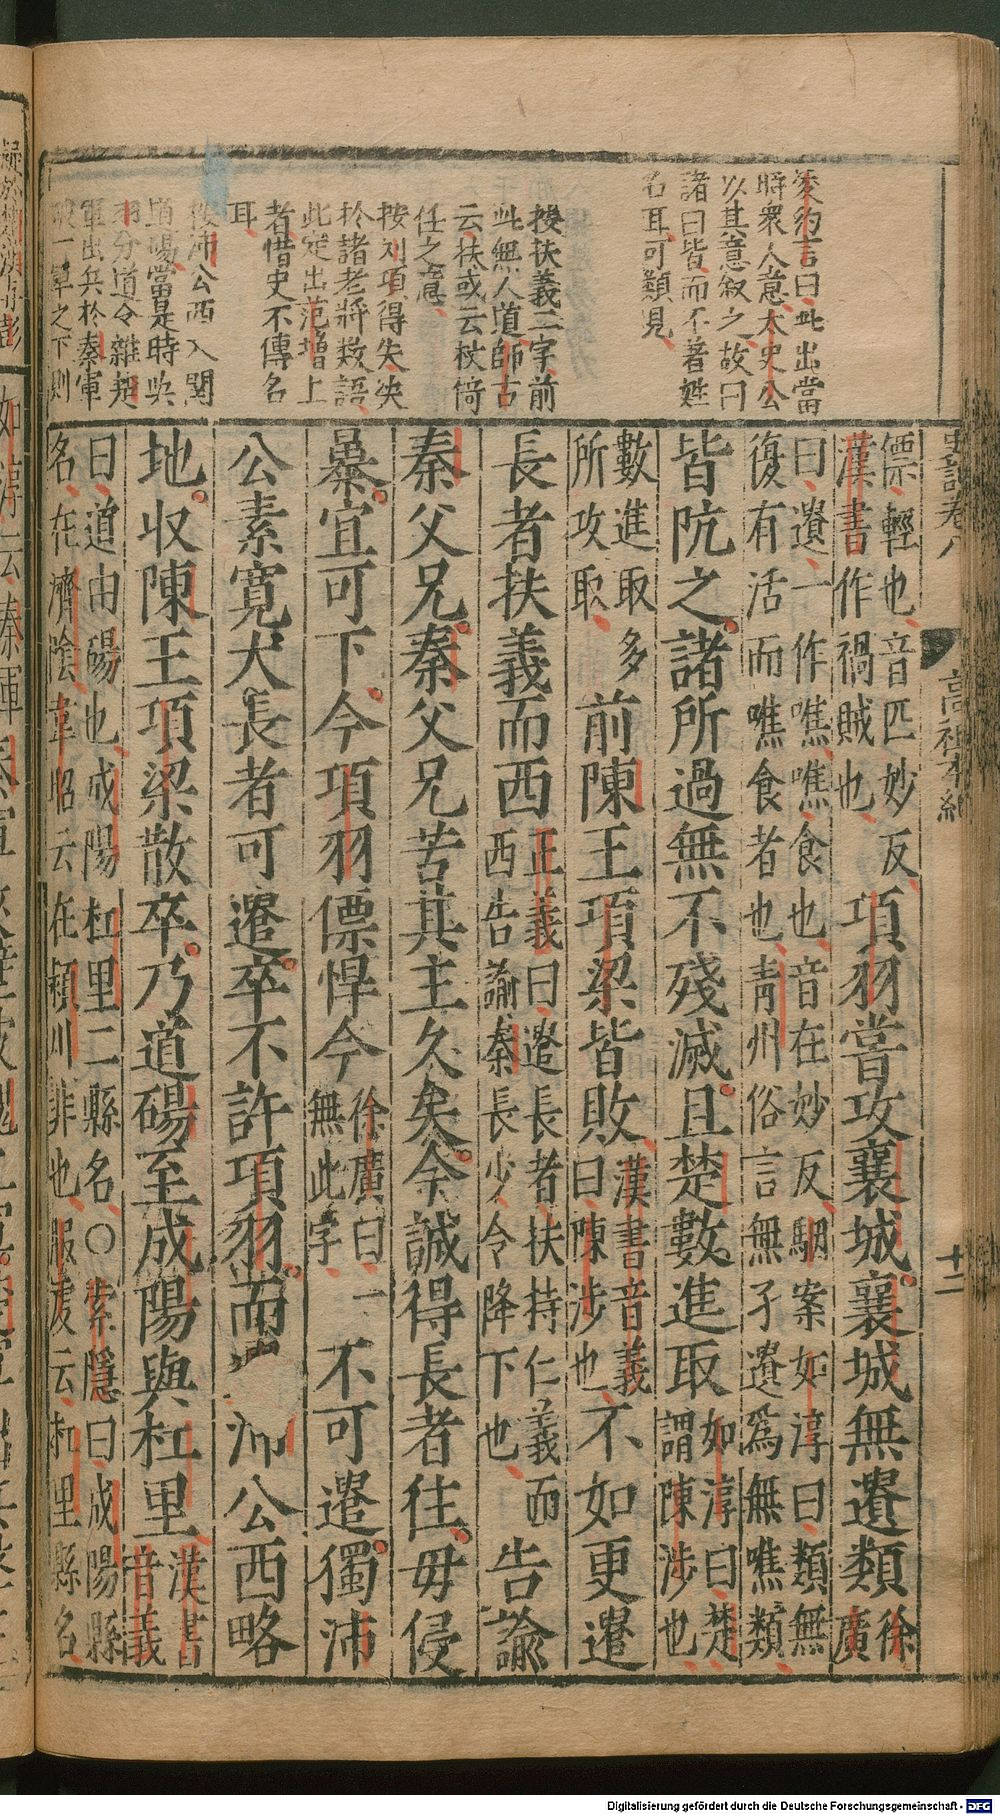 凌約言曰此出當
時衆人意太史公
以其意叙之故曰
諸曰皆而不著姓
名耳可類見
按扶義二字前
此無人道師古
云扶或云杖倚
任之意
按刘項得失决
於諸老將数語
此定出范增上
者惜史不傳名
耳
按沛公西入關
道碭當是時与
羽分道令雜
軍出兵於秦軍
破一軍之下則
史記卷八
高祖本紀
十二
僄輕也音匹妙反
漢書作禍賊也
項羽嘗攻襄城襄城無遺類
徐廣
曰遺一作噍噍食也音在妙反駰案如淳曰類無
復有活而噍食者也靑州俗言無孑遺爲無噍類
皆阬之諸所過無不殘滅且楚數進取
如淳曰楚
謂陳涉也
數進取多
所攻取
前陳王項梁皆敗
漢書音義
曰陳涉也
不如更遣
長者扶義而西
正義曰遣長者扶持仁義而
西告諭秦長少令降下也
告諭
秦父兄秦父兄苦其主久矣今誠得長者往毋侵
暴宜可下今項羽僄悍今
徐廣曰一
無此字
不可遣獨沛
公素寛大長者可遣卒不許項羽而
沛公西略
地收陳王項梁散卒乃道碭至成陽與杠里
漢書
音義
曰道由碭也成陽杠里二縣名○索隱曰成陽縣
名在濟陰韋昭云在頴川非也服虔云杠里縣名
Digitalisierung gefördert durch die Deutsche Forschungsgemeinschaft - DFG